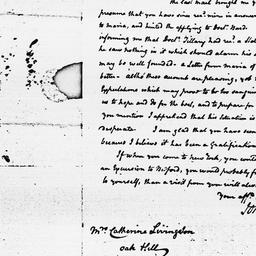 the last mail brought me y
presume that you have since rec.^d mine in answer
to maria, and hinted the applying to Doct.^r Bard.
informing me that Doct.^r Tillary had rec.^d a
he saw nothing in it which should alarm his
may be well founded. a Letter from maria of
better. all these accounts are pleasing, yet
Expectations which may prove to be too sanguine
us to hope and do for the best, and to prepare for
you mention I apprehend that his situation is
desperate. I am glad that you have
because I believe it has been a Gratification
If when you come to New York, you could
an Excursion to Bedford, you would probably
to yourself, than a visit from you will always
your aff.^t
M.^rs Catherine Livingston
oak Hill